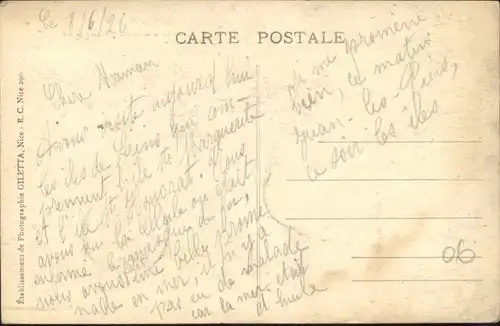 Le 8/6/26
CARTE POSTALE
Chère Maman
Avons visité aujourd'hui
les îles de Lérins qui com-
prennent l'île Ste Marguerite
et l'île St Honorat. Nous
avons vu la cellule où était
enfermé
nous avons fait une belle prome-
nade en mer, il n'y a
pas eu de malade
car la mer était
d'huile
me promène
bien, ce matin
Juan-les-Pins,
ce soir les îles
Établissement de Photographie GILETTA, Nice - R. C. Nice 290
06